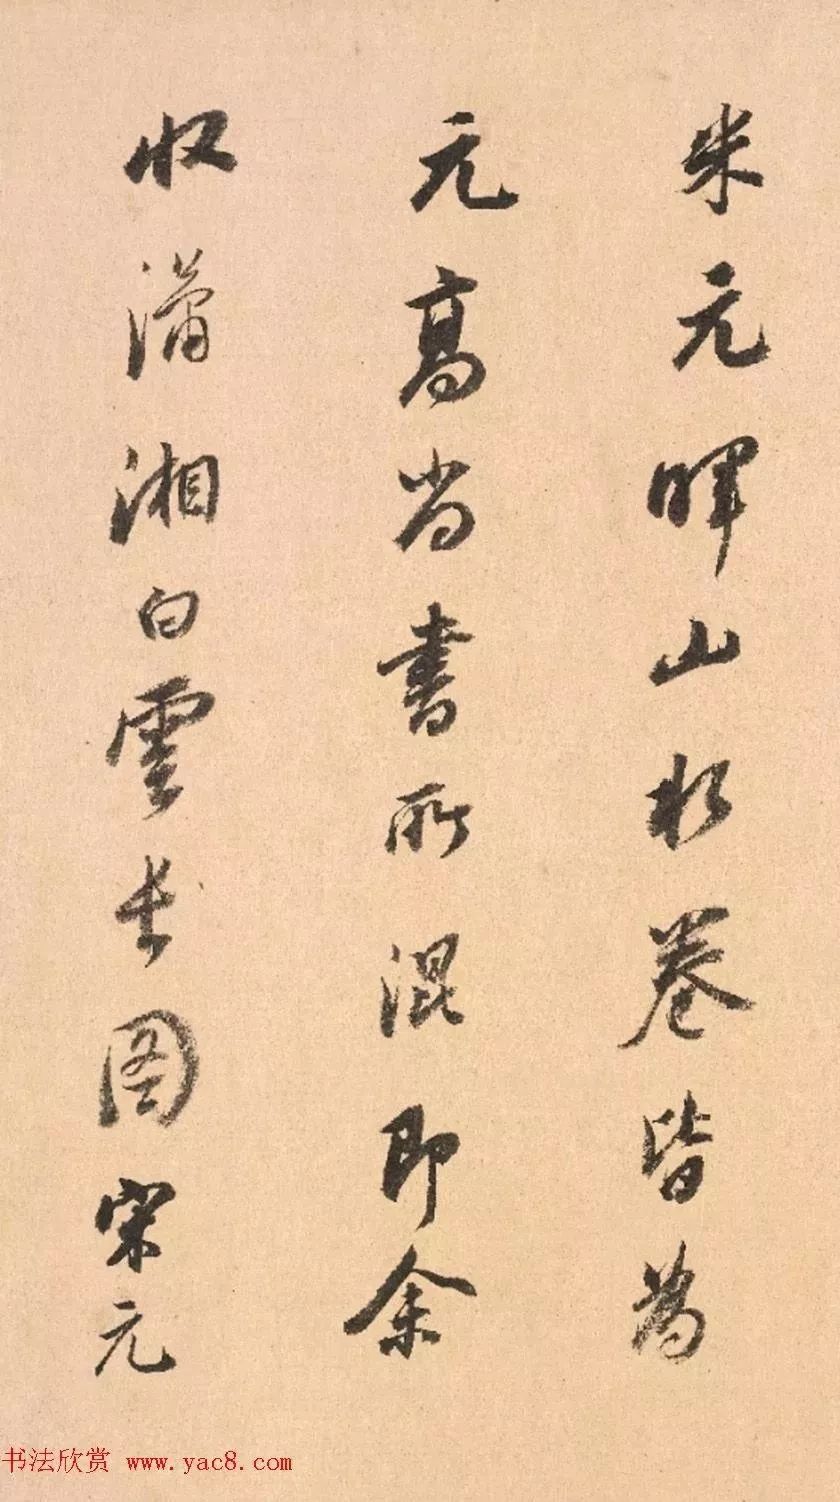 米元暉山水卷皆為
元高尚書所混即余
收瀟湘白雲長圖宋元
书法欣赏 www.yac8.com